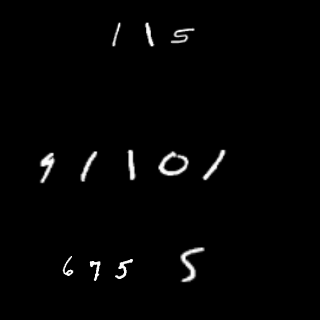 115
91101
675 5